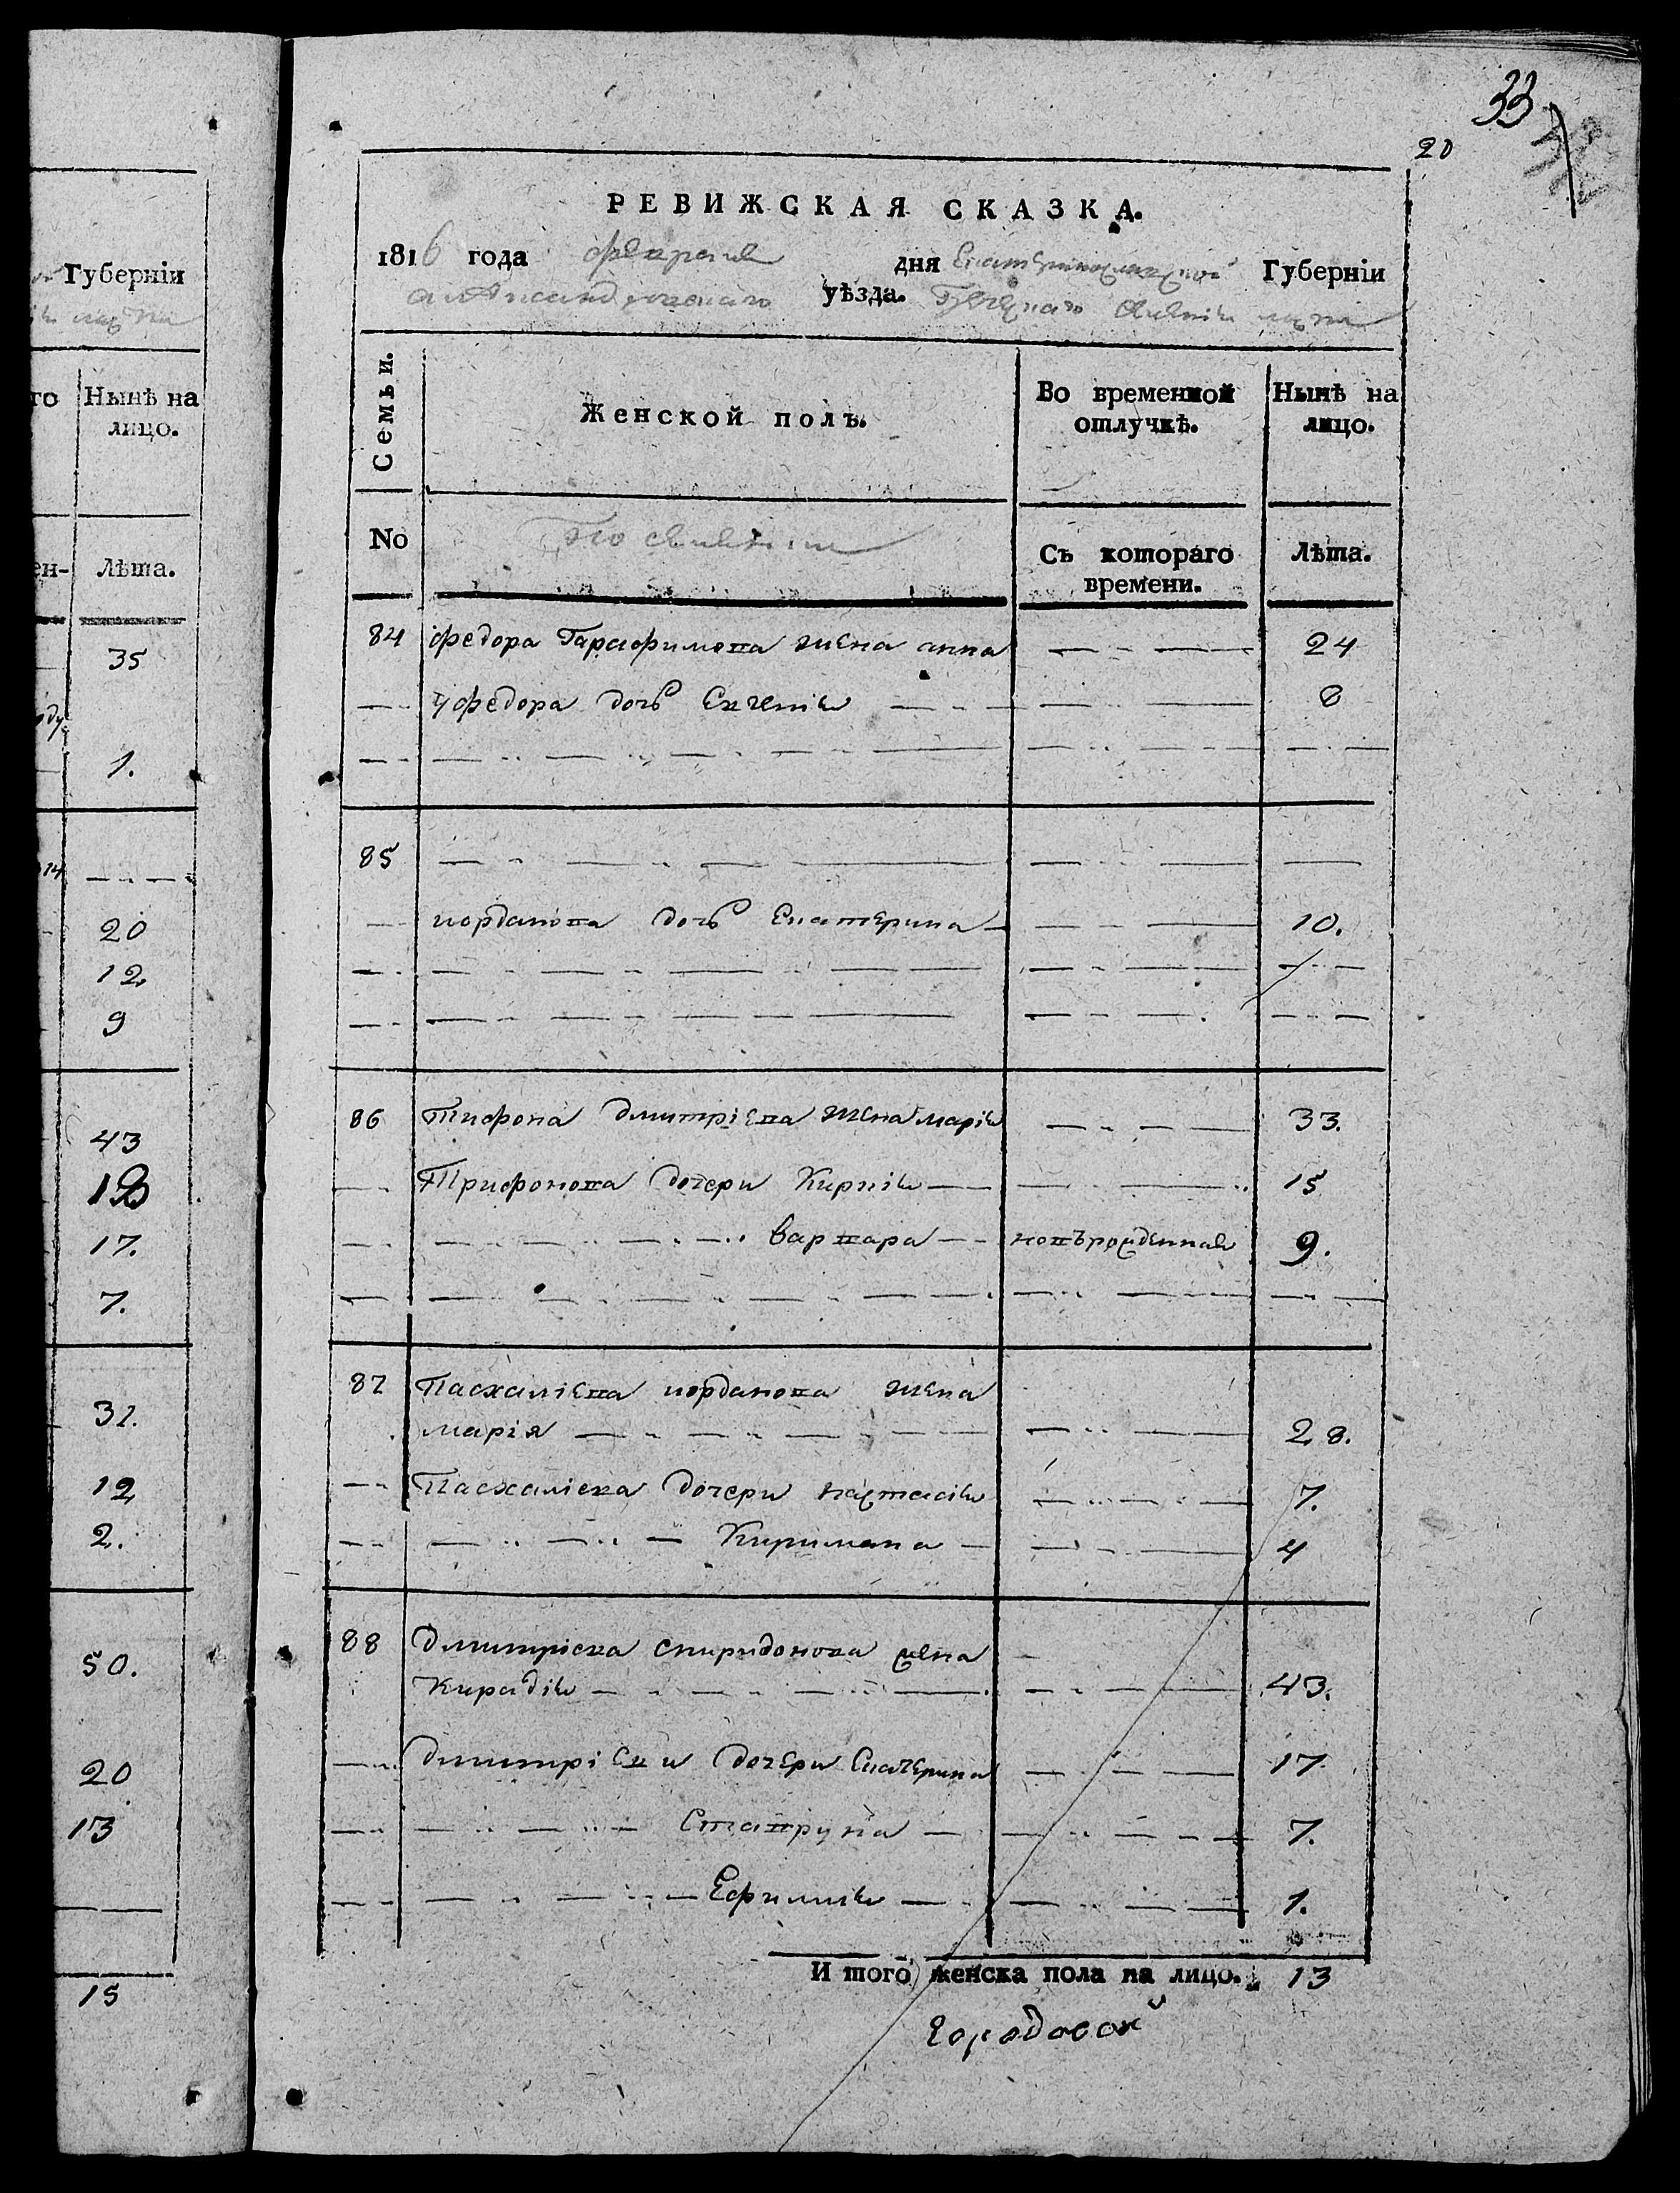 Губерніи
го
Нынѣ на
лицо.
ен-
Лѣта.
35
1.
20
12
9
43
13
17.
7.
31.
12
2.
50.
20
13
15
33
20
РЕВИЖСКАЯ СКАЗКА.
1816 года февраля дня Екатеринославской Губерніи
александровскаго уѣзда.
Семьи.
Женской полъ.
Во временной
отлучкѣ.
Нынѣ на
лицо.
No
Съ котораго
времени.
Лѣта.
84 федора Гарафимова жена анна — 24
— у федора дочь Евгенія — 8
85 —
— иорданова дочь Екатерина — 10.
86 Тифона дмитріева жена марія — 33.
— Трифонова дочери Кирнія — 15
— варвара — новърожденная 9.
87 Пасхаліева иорданова жена
марія — 28.
— Пасхаліева дочери настасія — 7.
— Киримана — 4
88 дмитріева спиридонова жена
Кирадія — 43.
— дмитріеви дочери Екатерина — 17
— Ставруна — 7.
— Ефимія — 1.
И того женска пола на лицо. 13
городовой